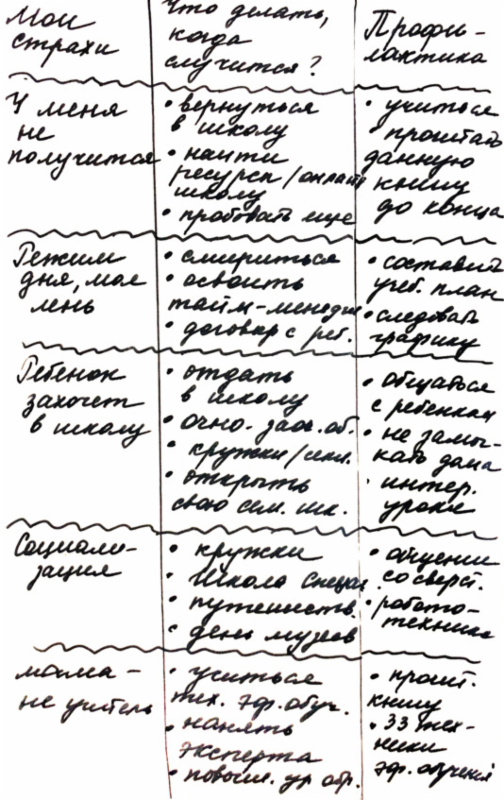 Мои
страхи
Что делать,
когда
случится?
Профи-
лактика
У меня
не
получится
• вернуться
в школу
• найти
ресурсы/онлайн
школу
• пробовать еще
• учиться
• прочитать
данную
книгу
до конца
Режим
дня, моя
лень
• смириться
• освоить
тайм-менедж
• договор с реб.
• составить
учеб. план
• следовать
графику
Ребенок
захочет
в школу
• отдать
в школу
• очно-заоч. об.
• кружки/секц.
• открыть
свою сем. шк.
• общаться
с ребенком
• не замы-
кать дома
• интер.
уроки
Социали-
зация
• кружки
• Школа Спецаг.
• путешеств.
• день музеев
• общении
со сверст.
• робото-
техника
мама -
не учитель
• учиться
тех. эф. обуч.
• нанять
эксперта
• повыш. ур. обр.
• прочит.
книгу
• 33 тех-
ники
эф. обучения